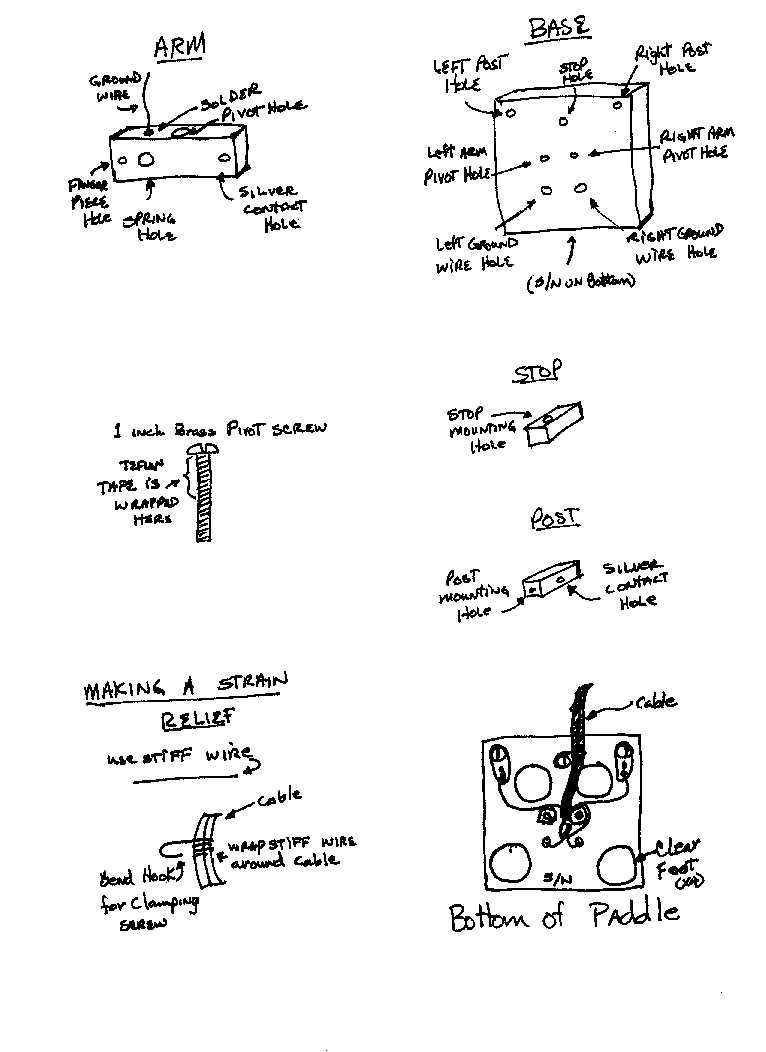 ARM
GROUND
WIRE
SOLDER
PIVOT HOLE
FINGER
PIECE
HOLE
SPRING
HOLE
SILVER
CONTACT
HOLE
BASE
LEFT POST
HOLE
STOP
HOLE
Right Post
HOLE
Left ARM
PIVOT HOLE
RIGHT ARM
PIVOT HOLE
Left GROUND
WIRE HOLE
RIGHT GROUND
WIRE HOLE
(S/N ON Bottom)
STOP
STOP
MOUNTING
Hole
1 inch Brass PIVOT SCREW
TEFLON
TAPE IS
WRAPPED
HERE
POST
POST
MOUNTING
Hole
SILVER
CONTACT
HOLE
MAKING A STRAIN
RELIEF
use STIFF WIRE
Cable
WRAP STIFF WIRE
around Cable
Bend Hook
for Clamping
SCREW
Cable
Clear
Foot
(x4)
S/N
Bottom of PADDLE